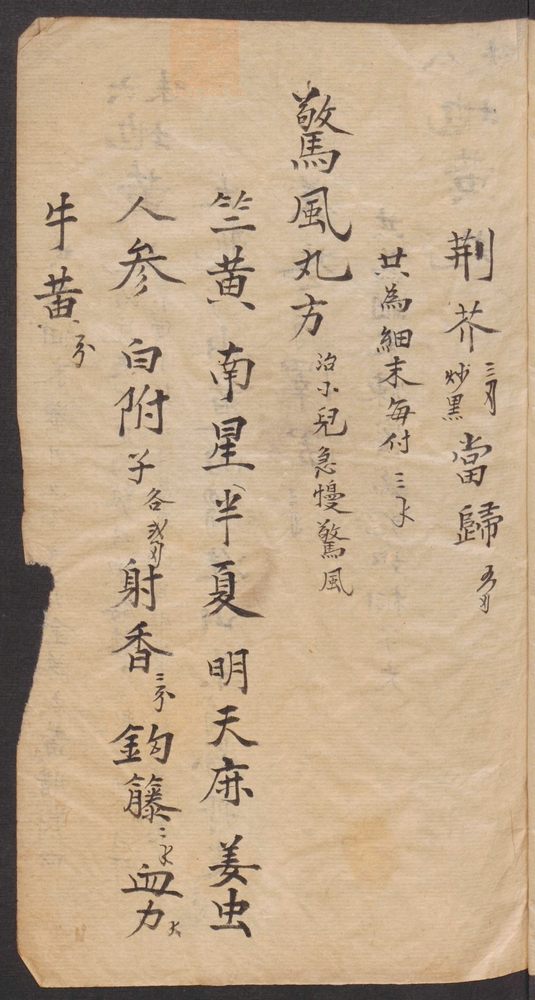 荆芥炒黑三刄當歸五刄
共為細末每付三
驚風丸方治小兒急慢驚風
竺黄南星半夏明天麻姜虫
人參白附子各射香三分鈎籐二血力
牛黄分